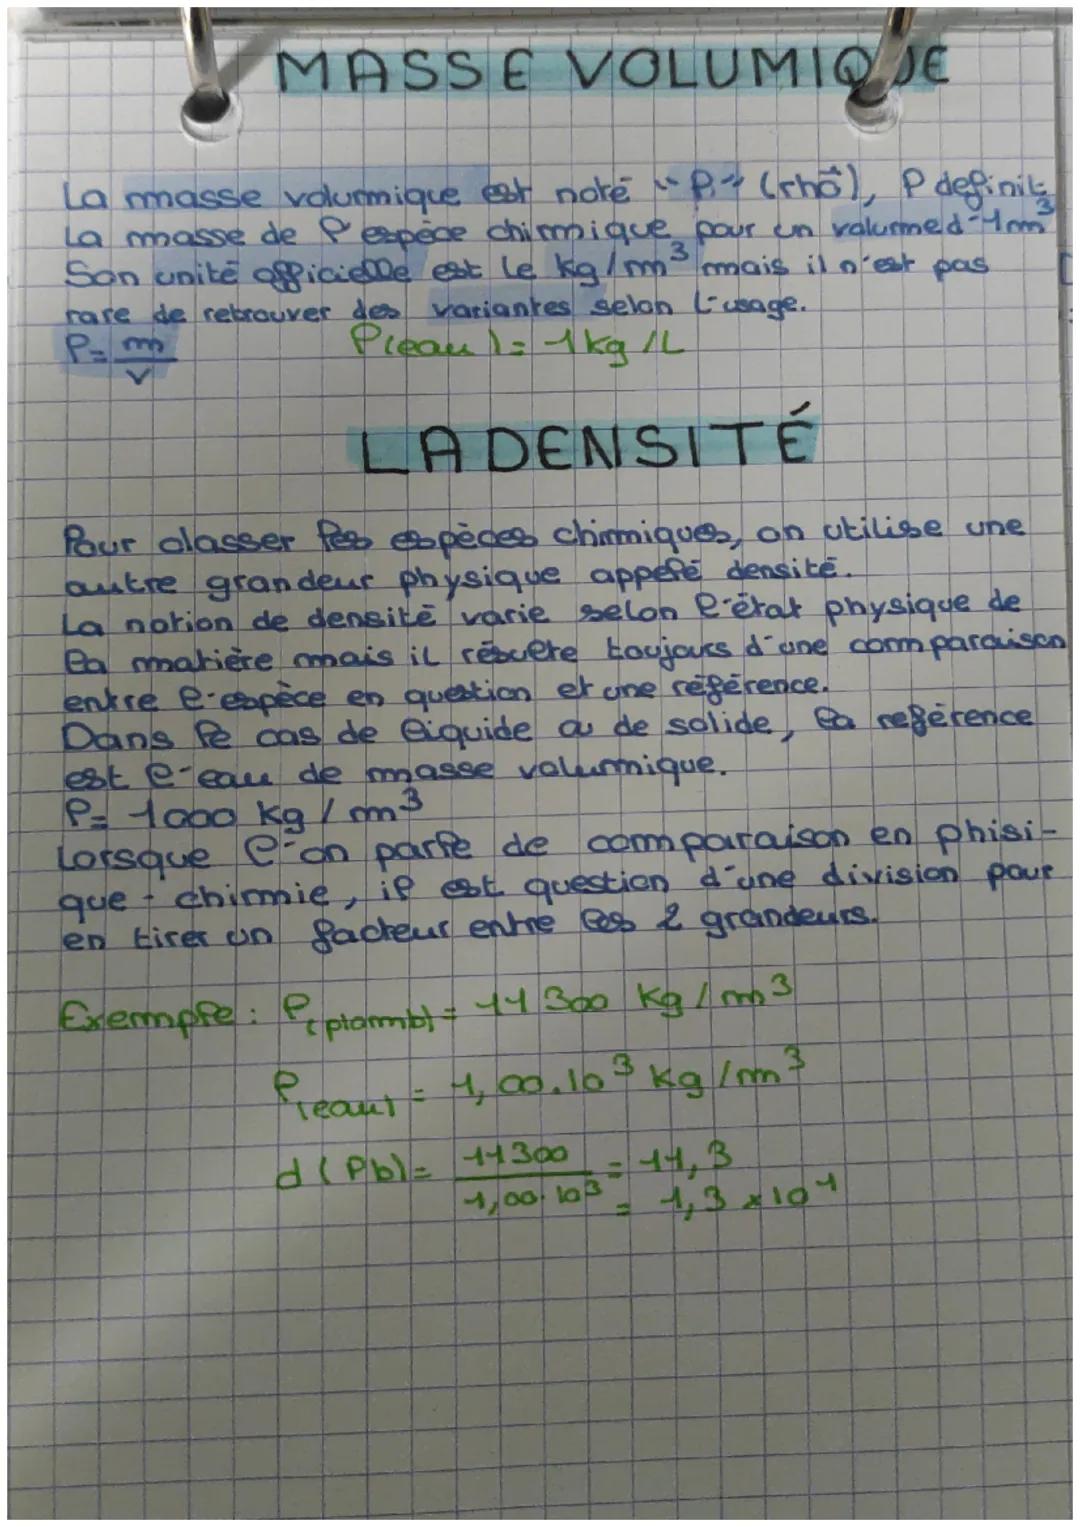 MASSE VOLUMIQUE
La masse volumique est noté "ρ" (rhô), ρ definit
La masse de l'espèce chimique pour un volume d'1m³
Son unité officielle est le kg/m³ mais il n'est pas
rare de retrouver des variantes selon l'usage.
ρ = m/V ρ(eau) = 1kg/L
LA DENSITÉ
Pour classer les espèces chimiques, on utilise une
autre grandeur physique appelé densité.
La notion de densité varie selon l'état physique de
la matière mais il résulte toujours d'une comparaison
entre l'espèce en question et une référence.
Dans le cas de liquide ou de solide, la reférence
est l'eau de masse volumique.
ρ = 1000 kg/m³
Lorsque l'on parle de comparaison en phisi-
que-chimie, il est question d'une division pour
en tirer un facteur entre les 2 grandeurs.
Exemple : ρ(plomb) = 11 300 kg/m³
ρ(eau) = 1,00.10³ kg/m³
d(Pb) = 11300/1,00.10³ = 11,3
= 1,3 × 10¹